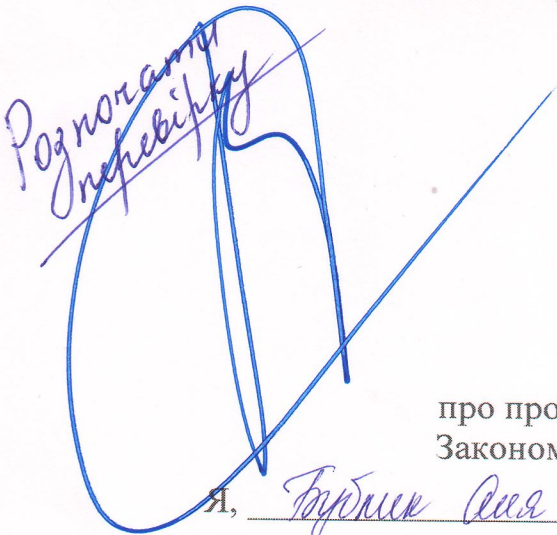 Розпочати
перевірку
про про
Законом
Я, Бублик Аня